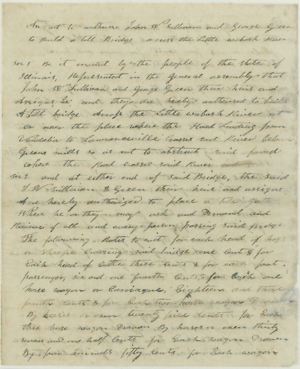 An act to authorize John W Sullivan and George Green
to build a toll Bridge across the Little wabash River
Sec 1 Be it enacted by the people of the State of
Illinois, Represented in the General assembly that
John W Sullivan and George Green their heirs and
assigns be and they are hereby authorized to build
A toll bridge across the Little wabash River at
or near the place where the Road Leading from
Vandalia to Lawrenceville crosses said River
Green mills so as not to obstruct and pound
where the Road crosses said River
Sec 2 and at either end of said Bridge, the said
J. W Sullivan & Green their heirs and assigns
Are hereby authorized to place a toll gate
Where he or they may ask and Demand and
Receive of all and every person passing said bridge
The following Rates to wit for each head of hog
or sheep crossing said bridge one cent & for
Each head of cattle three cents & for each foot
passenger six and one fourth Cents for Each one
horse wagon or Carriage, Eighteen and three
fourths cents & for Each two horse wagon
twenty five cents for Each
three horse wagon Drawn By horses or oxen thirty
seven and one half Cents for Each wagon Drawn
By four animals fifty cents, for Each wagon